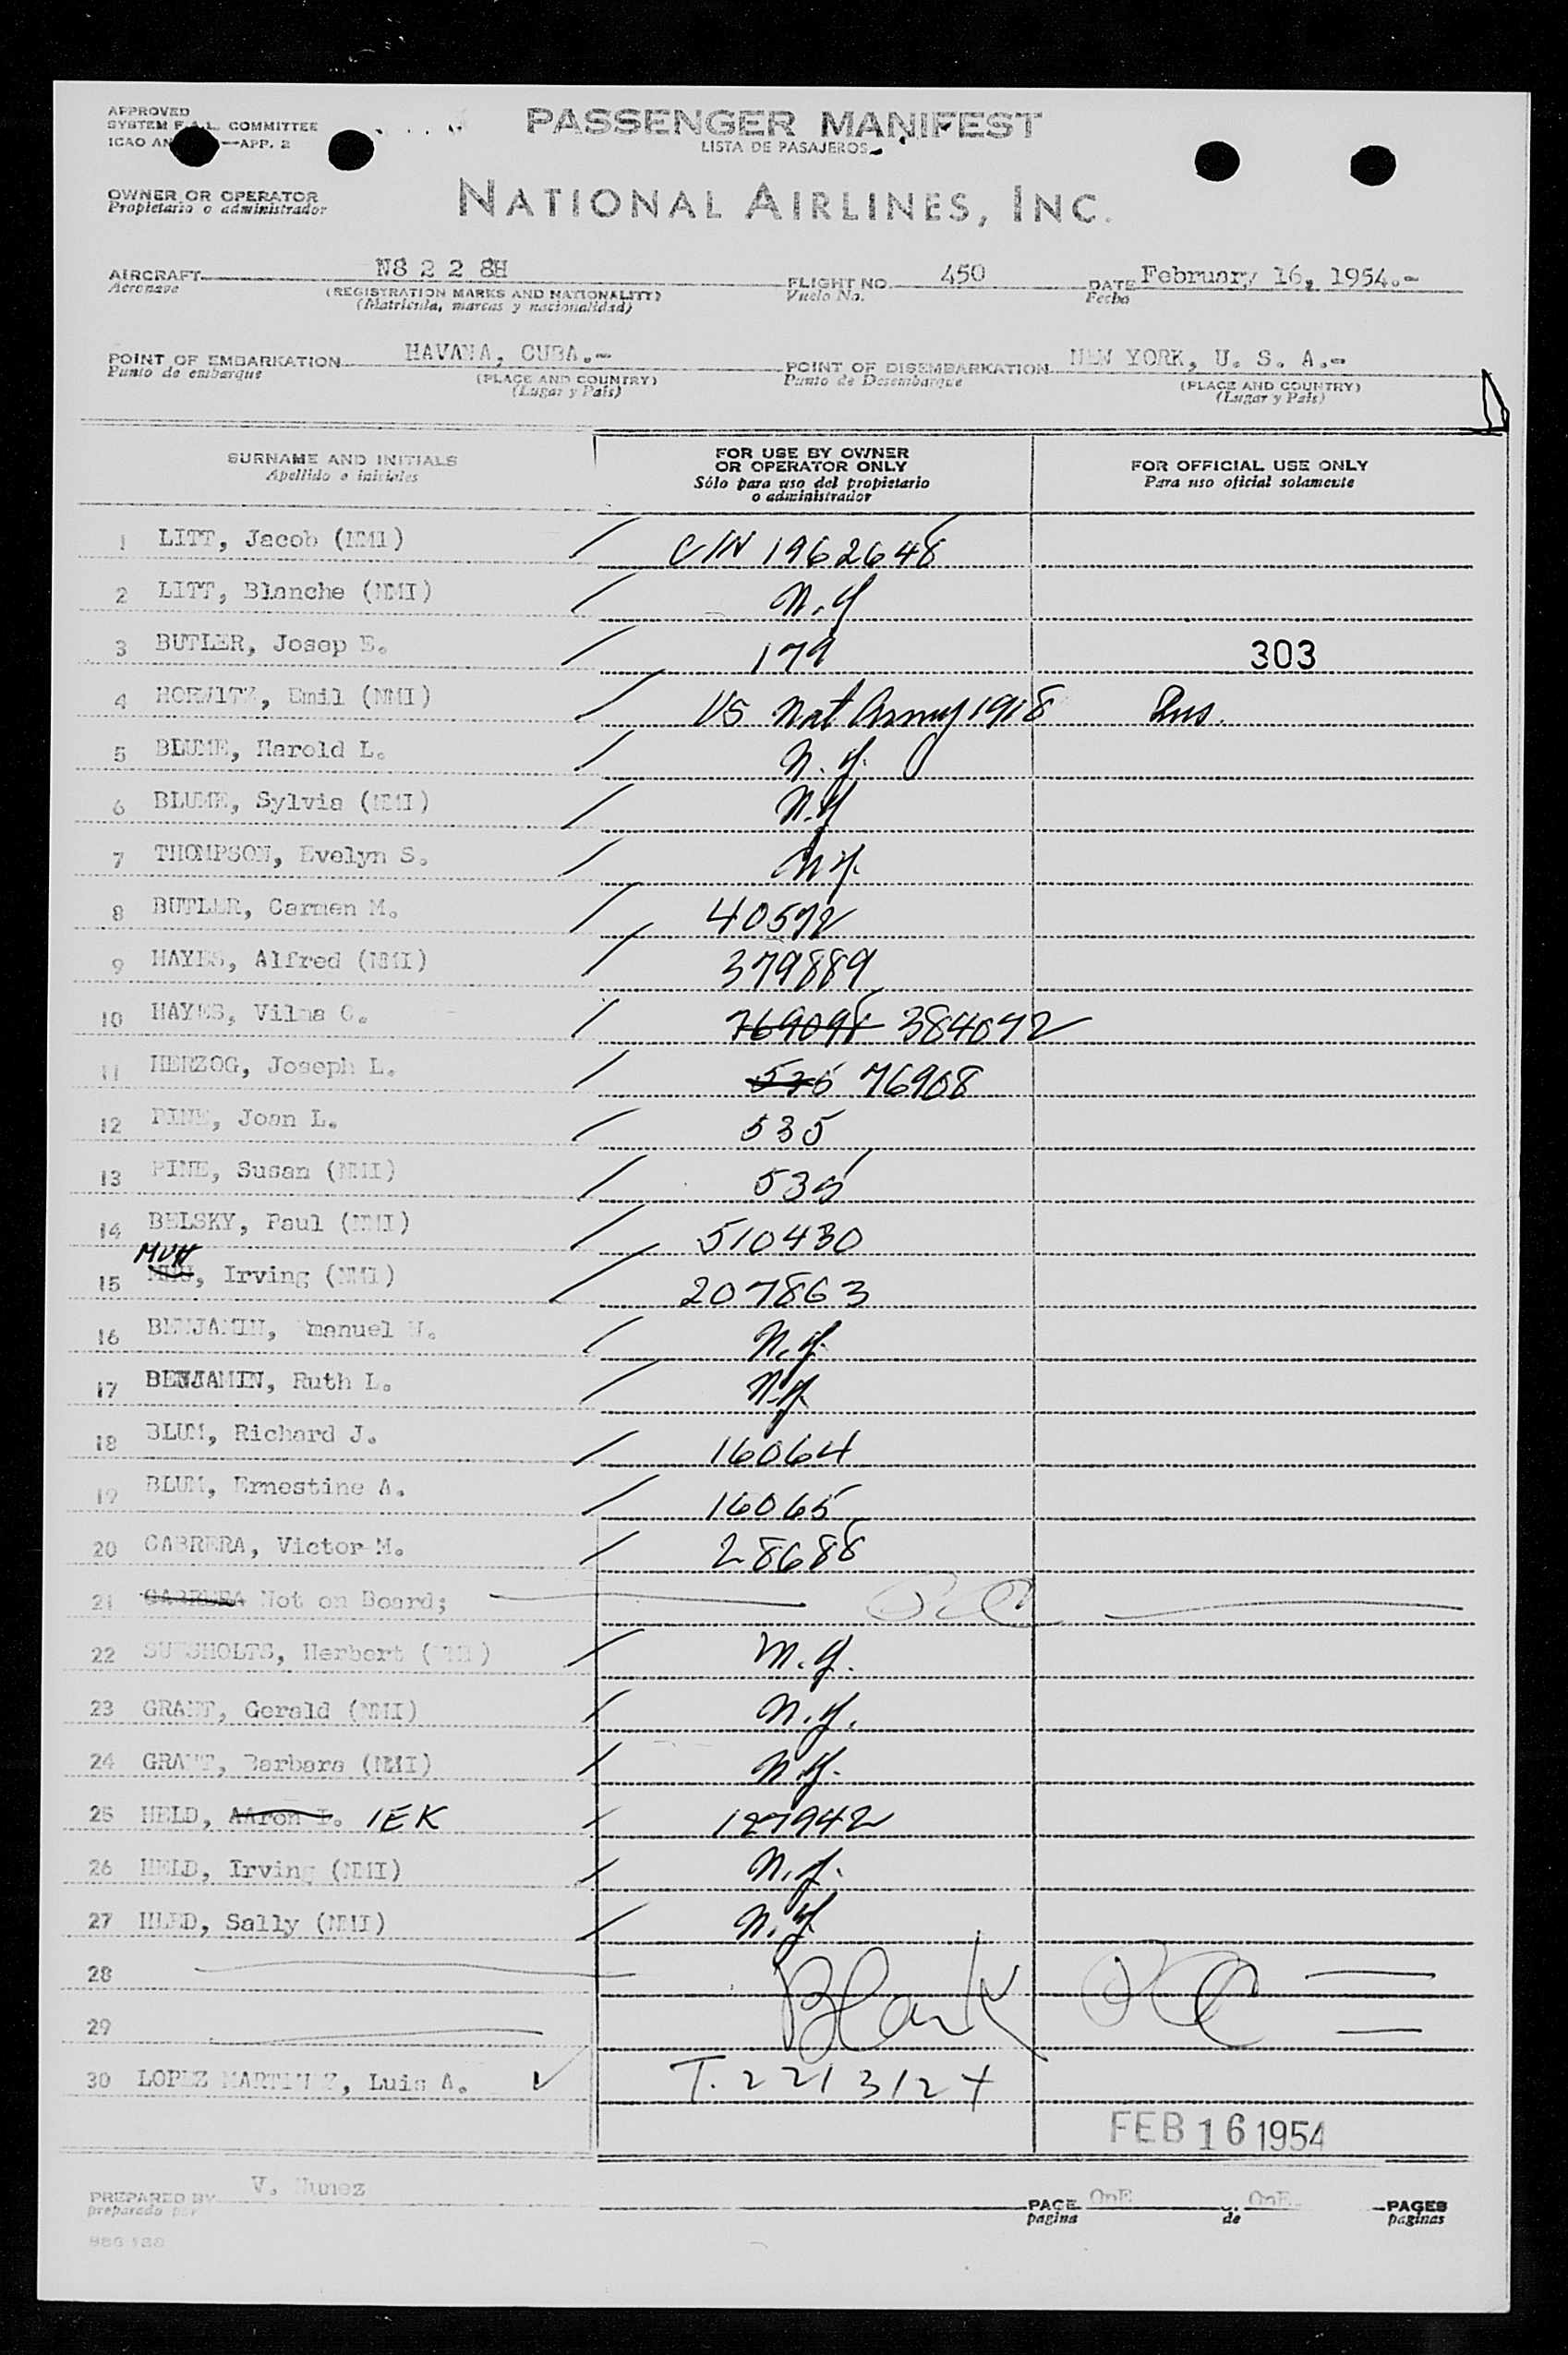 APPROVED
SYSTEM F.A.L. COMMITTEE
ICAO AN —APP. 2
PASSENGER MANIFEST
LISTA DE PASAJEROS
OWNER OR OPERATOR
Propietario o administrador
NATIONAL AIRLINES, INC.
AIRCRAFT N8 2 2 8H FLIGHT NO. 450 DATE February 16, 1954.-
Aeronave (REGISTRATION MARKS AND NATIONALITY) Vuelo No. Fecha
(Matricula, marcas y nacionalidad)
POINT OF EMBARKATION HAVANA, CUBA.- POINT OF DISEMBARKATION NEW YORK, U. S. A.-
Punto de embarque (PLACE AND COUNTRY) Punto de Desembarque (PLACE AND COUNTRY)
(Lugar y País) (Lugar y País)
SURNAME AND INITIALS
Apellido e iniciales
FOR USE BY OWNER
OR OPERATOR ONLY
Sólo para uso del propietario
o administrador
FOR OFFICIAL USE ONLY
Para uso oficial solamente
1 LITT, Jacob (NMI) C/N 1962648
2 LITT, Blanche (NMI) N.Y
3 BUTLER, Josep E. 179 303
4 HORWITZ, Emil (NMI) US Nat Army 1918
5 BLUME, Harold L. N.Y.
6 BLUME, Sylvia (NMI) N.Y
7 THOMPSON, Evelyn S. N.Y.
8 BUTLER, Carmen M. 40572
9 HAYES, Alfred (NMI) 379889
10 HAYES, Vilma C. 769098 384072
11 HERZOG, Joseph L. 576 76908
12 PINE, Joan L. 535
13 PINE, Susan (NMI) 535
14 BELSKY, Paul (NMI) 510430
MUH
15 , Irving (NMI) 207863
16 BENJAMIN, Emanuel W. N.Y.
17 BENJAMIN, Ruth L. N.Y.
18 BLUM, Richard J. 16064
19 BLUM, Ernestine A. 16065
20 CABRERA, Victor M. 28688
21 CABRERA Not on Board;
22 Herbert N.Y.
23 GRANT, Gerald (NMI) N.Y.
24 GRANT, Barbara (NMI) N.Y.
25 HELD, Aaron I. IEK 127942
26 HELD, Irving (NMI) N.Y.
27 HLED, Sally (NMI) N.Y
28 Blank
29
30 LOPEZ MARTINEZ, Luis A. T. 2213124
FEB 16 1954
PREPARED BY V. Nunez PAGE OnE OnE. PAGES
preparado por pagina de paginas